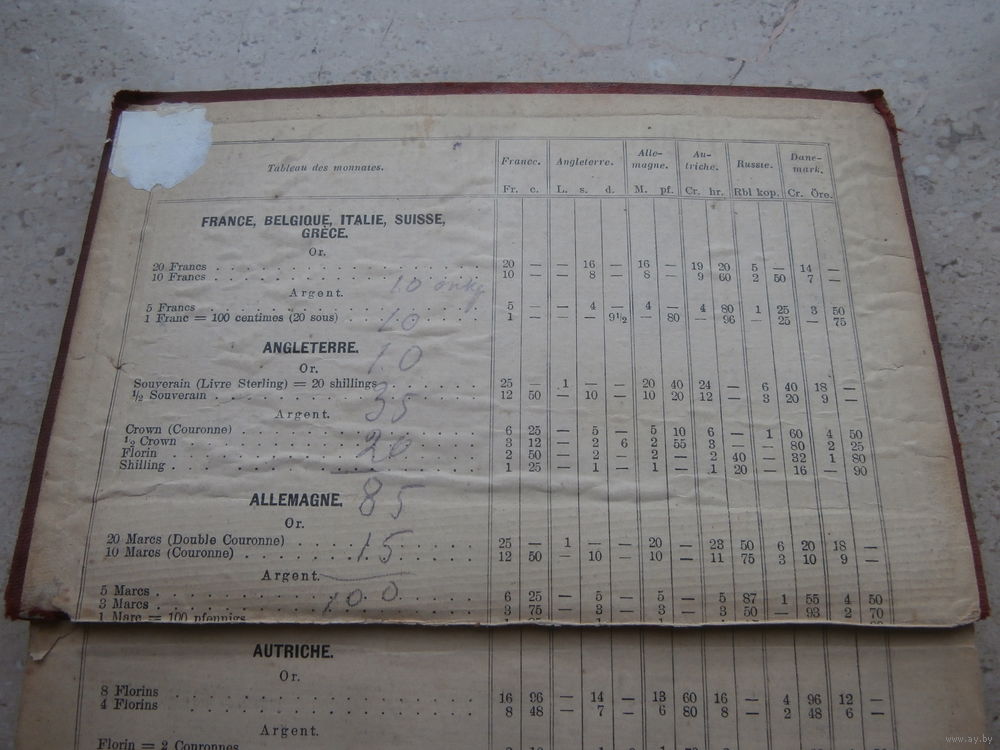 Tableau des monnaies. France. Angleterre. Alle-magne. Au-triche. Russie. Dane-mark.
Fr. c. L. s. d. M. pf. Cr. hr. Rbl kop. Cr. Öre.
FRANCE, BELGIQUE, ITALIE, SUISSE,
GRÈCE.
Or.
20 Francs . . . 20 — — 16 — 16 — 19 20 5 — 14 —
10 Francs . . . 10 — — 8 — 8 — 9 60 2 50 7 —
10
Argent.
5 Francs . . . 5 — — 4 — 4 — 4 80 1 25 3 50
1 Franc = 100 centimes (20 sous) . . . 1 — — — 9½ — 80 — 96 — 25 — 75
10
ANGLETERRE.
10
Or.
Souverain (Livre Sterling) = 20 shillings . . . 25 — 1 — — 20 40 24 — 6 40 18 —
½ Souverain . . . 12 50 — 10 — 10 20 12 — 3 20 9 —
35
Argent.
Crown (Couronne) . . . 6 25 — 5 — 5 10 6 — 1 60 4 50
½ Crown . . . 3 12 — 2 6 2 55 3 — — 80 2 25
Florin . . . 2 50 — 2 — 2 — 2 40 — 32 1 80
Shilling . . . 1 25 — 1 — 1 — 1 20 — 16 — 90
20
ALLEMAGNE.
85
Or.
20 Marcs (Double Couronne) . . . 25 — 1 — — 20 — 23 50 6 20 18 —
10 Marcs (Couronne) . . . 12 50 — 10 — 10 — 11 75 3 10 9 —
15
Argent.
5 Marcs . . . 6 25 — 5 — 5 — 5 87 1 55 4 50
3 Marcs . . . 3 75 — 3 — 3 — 3 50 — 93 2 70
100
1 Marc = 100 pfennigs
AUTRICHE.
Or.
8 Florins . . . 16 96 — 14 — 13 60 16 — 4 96 12 —
4 Florins . . . 8 48 — 7 — 6 80 8 — 2 48 6 —
Argent.
Florin = 2 Couronnes
www.ay.by